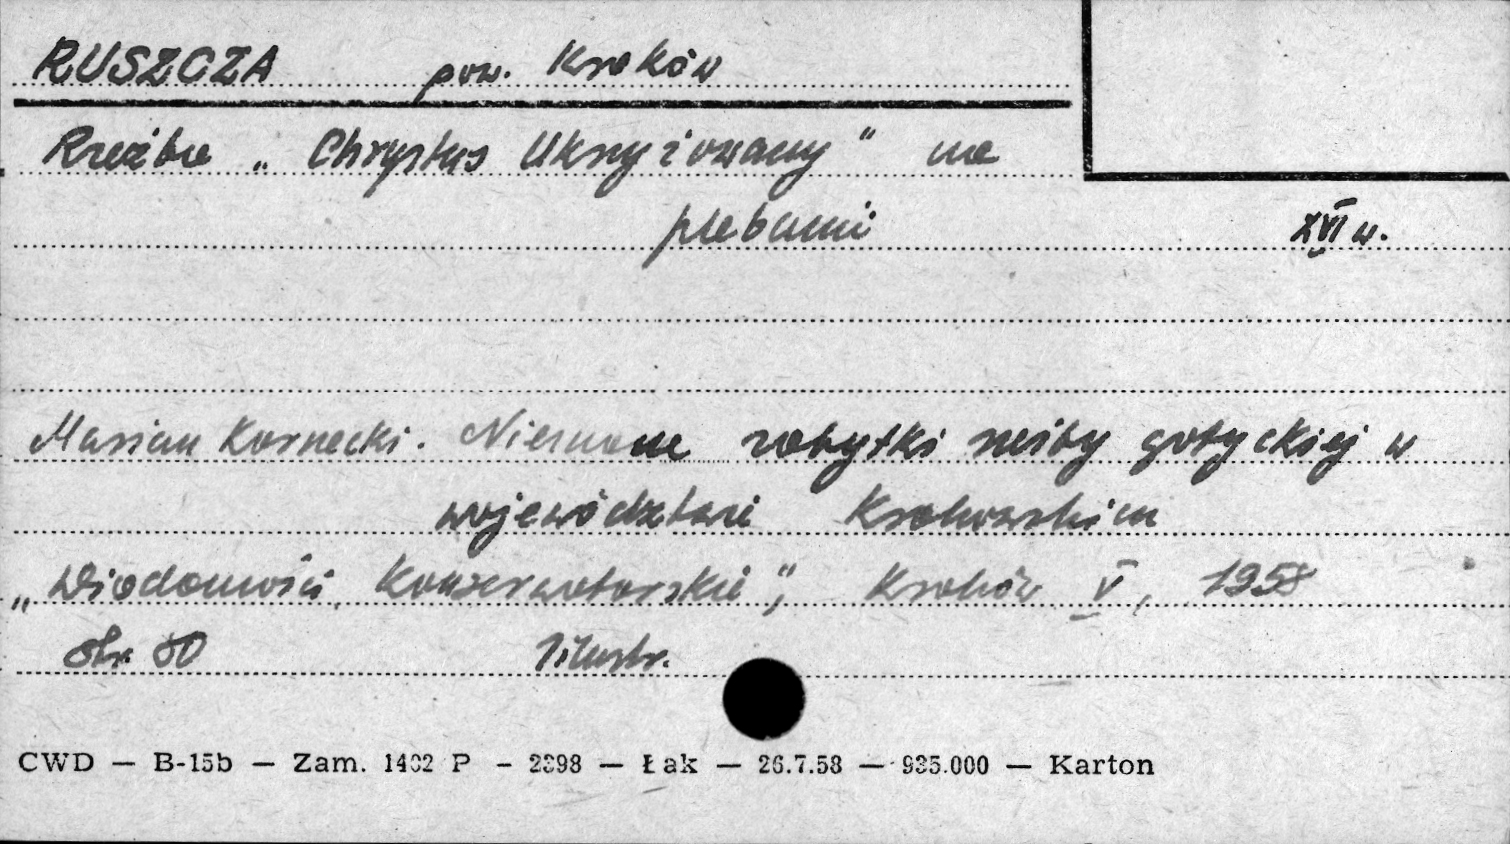 RUSZCZA pow. Kraków
Rzeźba „Chrystus Ukrzyżowany" na
plebanii XVI w.
Marian Kornecki. Nieznane zabytki rzeźby gotyckiej w
województwie Krakowskim
„Wiadomości Konserwatorskie", Kraków V, 1958
str. 80 Ilustr.
CWD — B-15b — Zam. 1402 P - 2398 — Łak — 26.7.58 — 935.000 — Karton